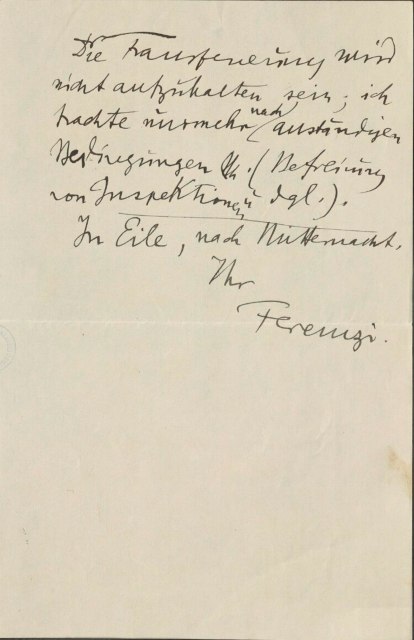 Die Transferierung wird
nicht aufzuhalten sein; ich
trachte nurmehr nach anständigen
Bedingungen. (Befreiung
von Inspektionen u dgl.).
In Eile, nach Mitternacht.
Ihr
Ferenczi.